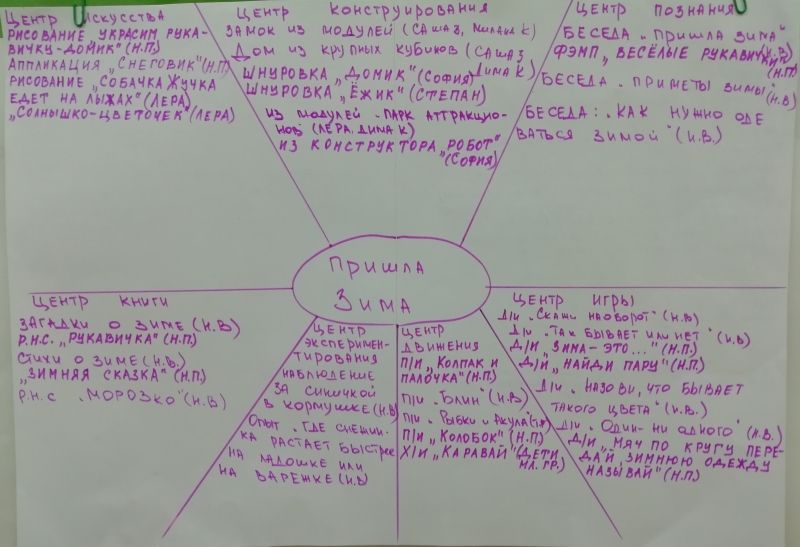 Центр искусства
Рисование украсим рука-
вичку-домик" (Н.П.)
Аппликация „Снеговик" (Н.П.)
Рисование „Собачка Жучка
едет на лыжах" (Лера)
„Солнышко-цветочек" (Лера)
Центр конструирования
Замок из модулей (Саша З, Милана К)
Дом из крупных кубиков (Саша З
Дима К)
Шнуровка „Домик" (София)
Шнуровка „Ёжик" (Степан)
Из модулей „Парк аттракцио-
нов (Лера, Дима К)
Из конструктора „Робот"
(София)
Центр познания
Беседа „Пришла зима"
(И.В.)
ФЭМП „Весёлые рукавички"
(Н.П.)
Беседа „Приметы зимы"
(И.В)
Беседа: „Как нужно оде
ваться зимой" (И.В.)
Пришла
Зима
Центр книги
Загадки о зиме (И.В)
Р.Н.С. „Рукавичка" (Н.П.)
Стихи о зиме (И.В.)
„Зимняя сказка" (Н.П.)
Р.Н.С „Морозко" (И.В)
Центр
эксперимен-
тирования
Наблюдение
за синичкой
в кормушке (И.В)
Опыт „Где снежин-
ка растает быстрее
на ладошке или
на варежке (И.В)
Центр
движения
П/и „Колпак и
палочка" (Н.П.)
П/и (И.В)
П/и „Рыбки и акула"
П/и „Колобок" (Н.П.)
Х/и „Каравай" (Дети
мл. гр.)
Центр игры
Д/и „Скажи наоборот" (И.В)
Д/и „Так бывает или нет" (И.В)
Д/и „Зима - это..." (Н.П.)
Д/и „Найди пару" (Н.П.)
Д/и „Назови, что бывает
такого цвета" (И.В.)
Д/и „Один - ни одного" (И.В.)
Д/и „Мяч по кругу пере-
дай, зимнюю одежду
называй" (Н.П.)